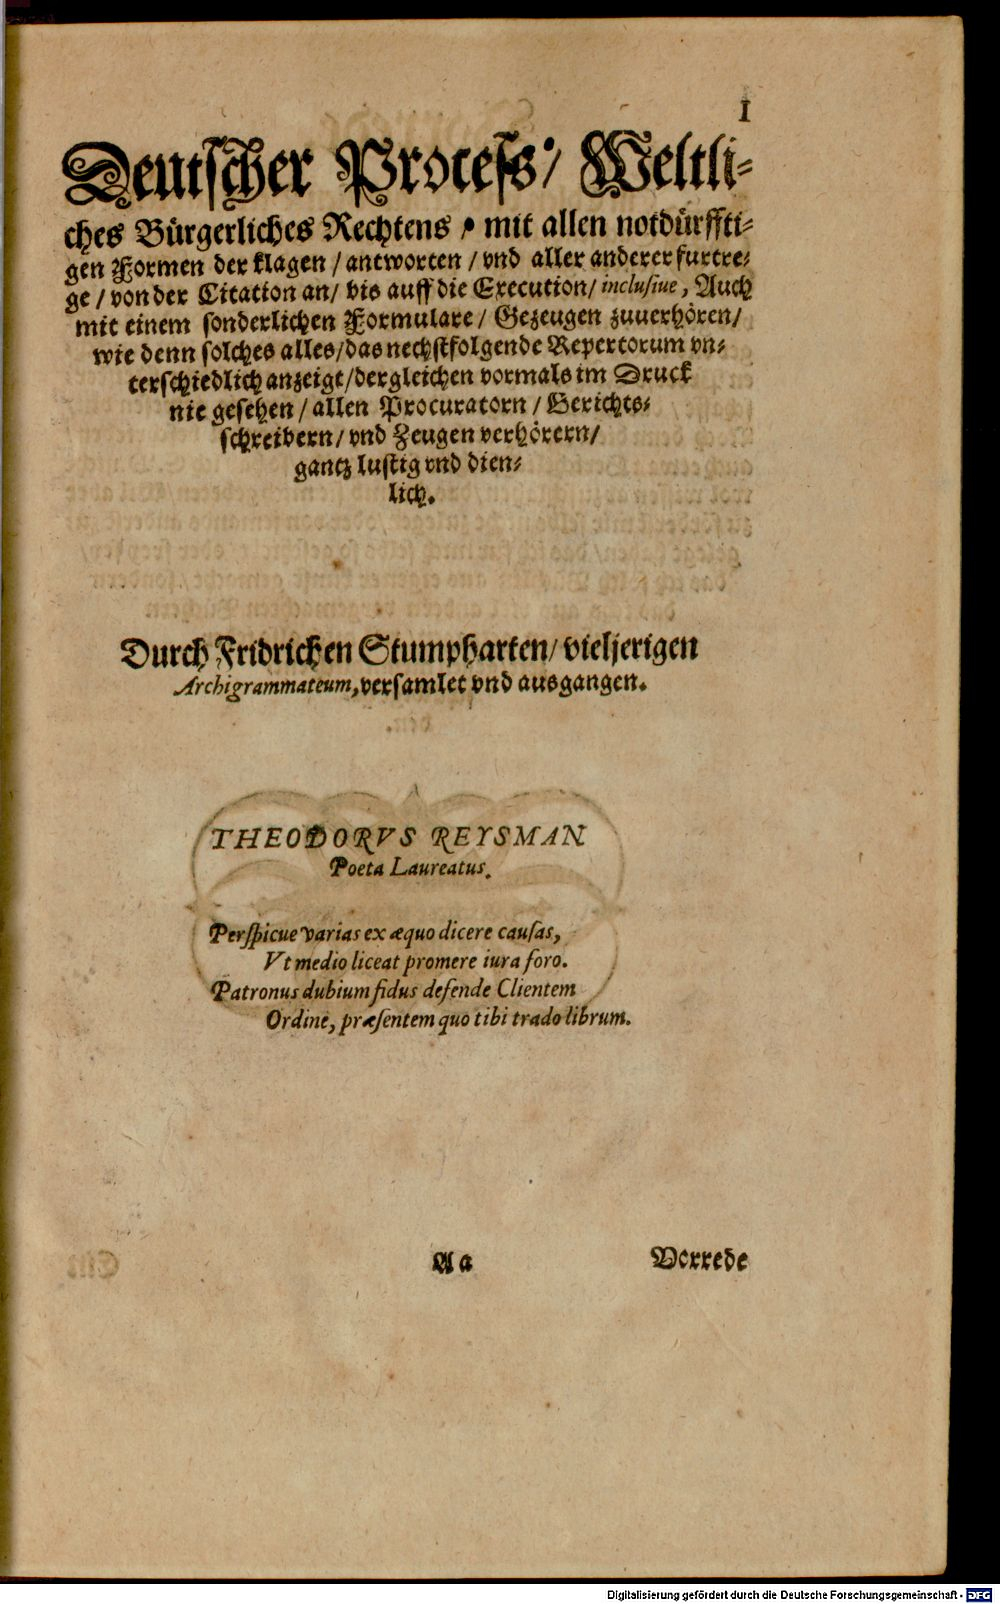 1
Deutscher Process/ Weltli-
ches Bürgerliches Rechtens, mit allen notdürffti-
gen Formen der klagen/ antworten/ vnd aller anderer furtre-
ge/ von der Citation an/ bis auff die Execution/ inclusiue, Auch
mit einem sonderlichen Formulare/ Gezeugen zuuerhören/
wie denn solches alles/ das nechstfolgende Repertorum vn-
terschiedlich anzeigt/ dergleichen vormals im Druck
nie gesehen/ allen Procuratorn/ Gerichts-
schreibern/ vnd Zeugen verhörern/
gantz lustig vnd dien-
lich.
Durch Fridrichen Stumpharten/ vieljerigen
Archigrammateum, versamlet vnd ausgangen.
THEODORVS REYSMAN
Poeta Laureatus.
Perspicue varias ex æquo dicere causas,
Vt medio liceat promere iura foro.
Patronus dubium fidus defende Clientem
Ordine, præsentem quo tibi trado librum.
Aa Vorrede
Digitalisierung gefördert durch die Deutsche Forschungsgemeinschaft - DFG